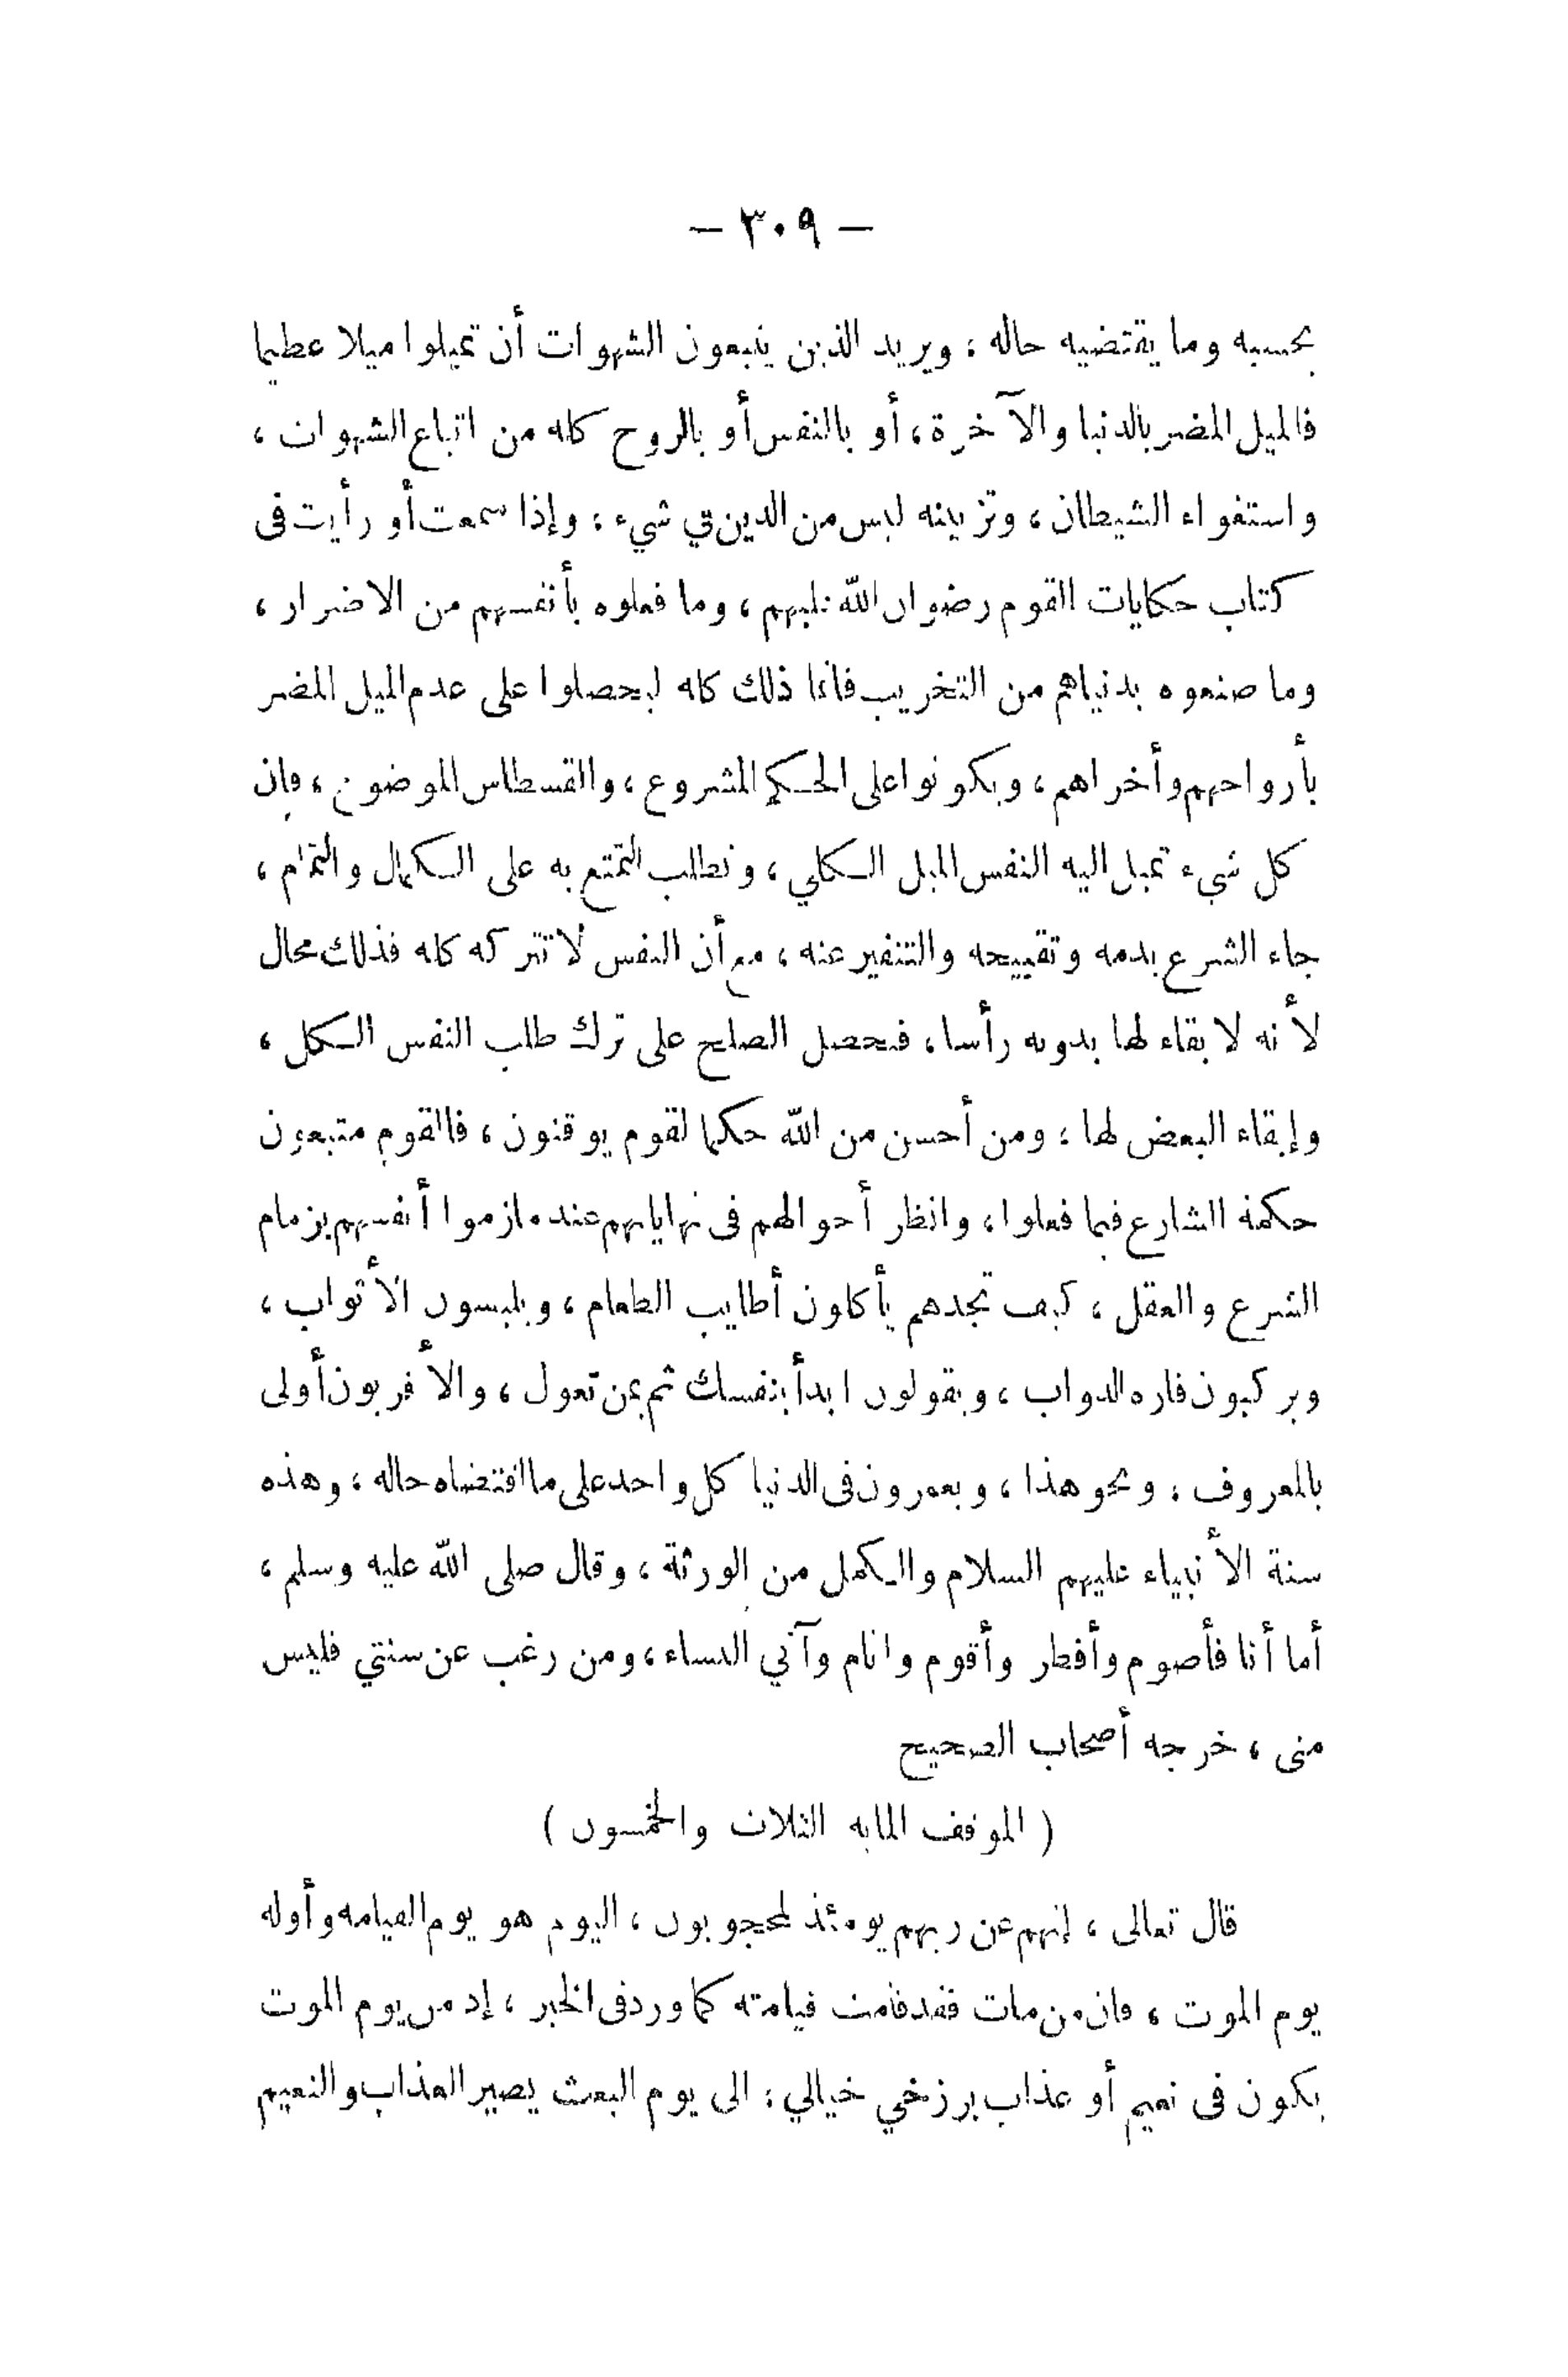 — ٣٠٩ —
بحسبه وما يقتضيه حاله ، ويريد الذين يتبعون الشهوات أن تميلوا ميلا عظيما
فالميل المضر بالدنيا والآخرة ، أو بالنفس أو بالروح كله من اتباع الشهوات ،
واستغواء الشيطان ، وتزيينه ليس من الدين في شيء ، وإذا سمعت أو رأيت فى
كتاب حكايات القوم رضوان الله عليهم ، وما فعلوه بأنفسهم من الاضرار ،
وما صنعوه بدنياهم من التخريب فانما ذلك كله ليحصلوا على عدم الميل المضر
بأرواحهم وأخراهم ، ويكونوا على الحكم المشروع ، والقسطاس الموضوع ، فإن
كل شيء تميل اليه النفس الميل الكلي ، وتطلب التمتع به على الكمال والتمام ،
جاء الشرع بذمه وتقبيحه والتنفير عنه ، مع أن النفس لا تتركه كله فذلك محال
لأنه لا بقاء لها بدونه رأسا ، فيحصل الصلح على ترك طلب النفس الكل ،
وإبقاء البعض لها ، ومن أحسن من الله حكما لقوم يوقنون ، فالقوم متبعون
حكمة الشارع فيما فعلوا ، وانظر أحوالهم فى نهاياتهم عند ما زموا أنفسهم بزمام
الشرع والعقل ، كيف تجدهم يأكلون أطايب الطعام ، ويلبسون الأثواب ،
ويركبون فاره الدواب ، ويقولون ابدأ بنفسك ثم بمن تعول ، والأقربون أولى
بالمعروف ، ونحو هذا ، ويعمرون فى الدنيا كل واحد على ما اقتضاه حاله ، وهذه
سنة الأنبياء عليهم السلام والكمل من الورثة ، وقال صلى الله عليه وسلم ،
أما أنا فأصوم وأفطر وأقوم وانام وآتي النساء ، ومن رغب عن سنتي فليس
منى ، خرجه أصحاب الصحيح
( الموقف المايه الثلاث والخمسون )
قال تعالى ، إنهم عن ربهم يومئذ لمحجوبون ، اليوم هو يوم القيامه وأوله
يوم الموت ، فان من مات فقد قامت قيامته كما ورد فى الخبر ، إذ من يوم الموت
يكون فى نعيم أو عذاب برزخي خيالي ، الى يوم البعث يصير العذاب والنعيم